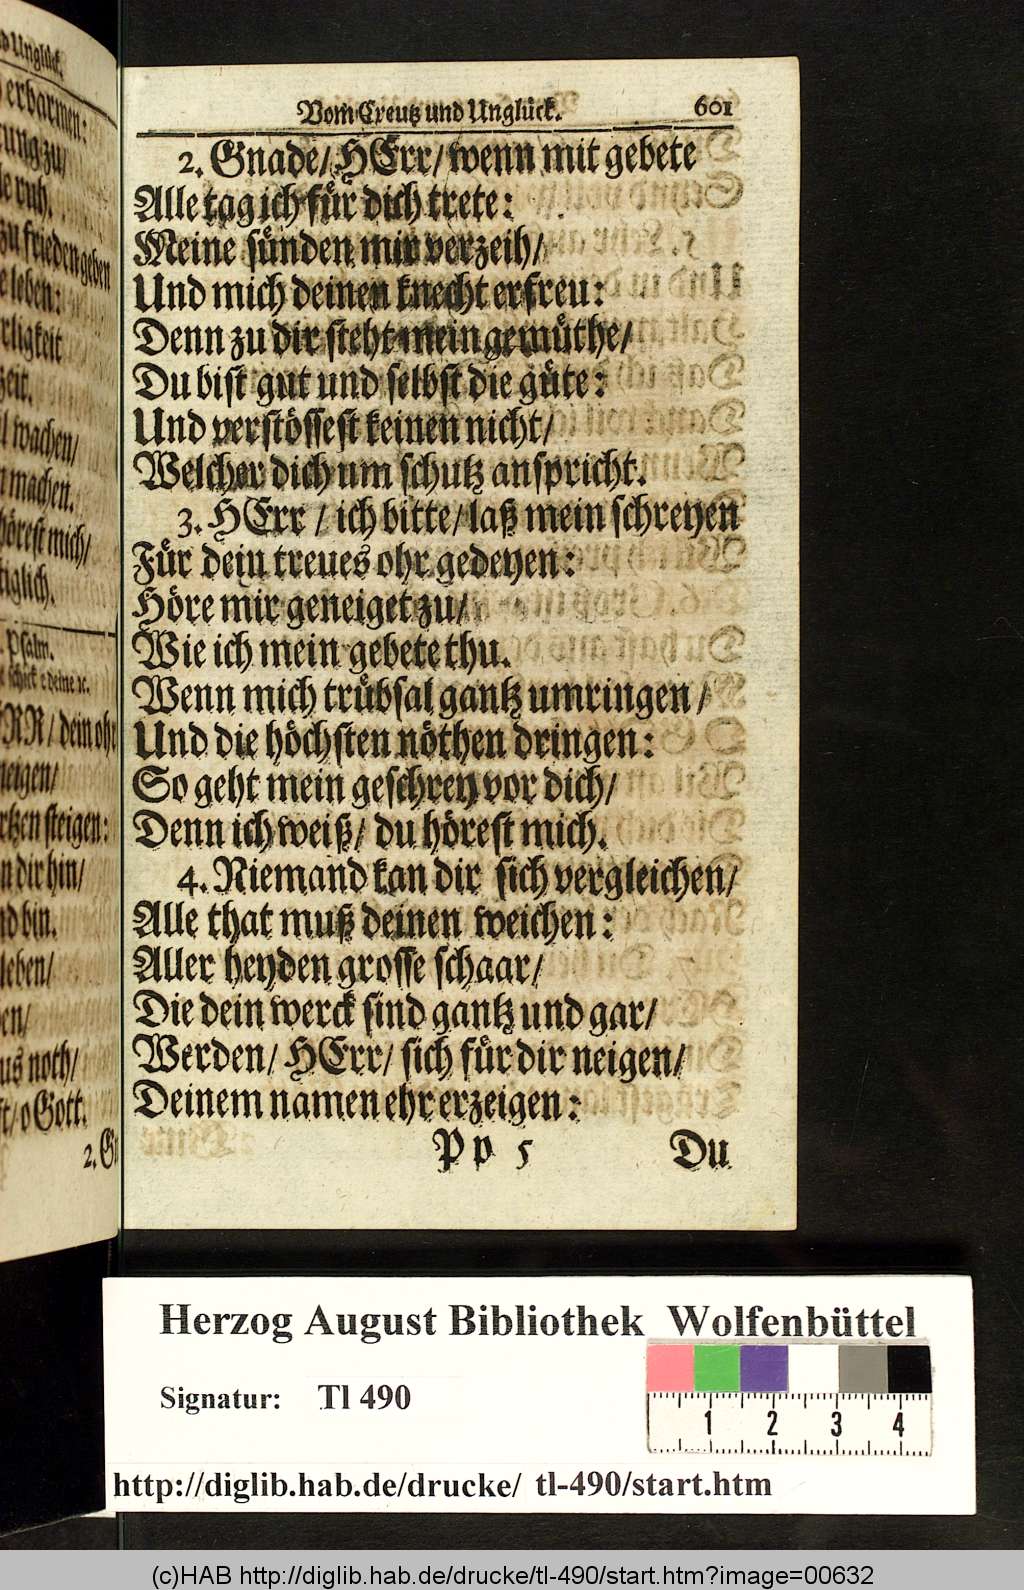 d Unglück.
erbarmen:
tung zu/
le ruh.
zu frieden geben
e leben:
rligkeit
zeit.
l wachen/
n machen.
hörest mich/
tiglich.
Psalm.
HERR/ dein ohr
neigen/
rtzen steigen:
n dir hin/
nd bin.
leben/
en/
us noch/
ft/ o Gott.
2. G
Vom Creutz und Unglück. 601
2. Gnade/ HErr/ wenn mit gebete
Alle tag ich für dich trete:
Meine sünden mir verzeih/
Und mich deinen knecht erfreu:
Denn zu dir steht mein gemüthe/
Du bist gut und selbst die güte:
Und verstössest keinen nicht/
Welcher dich um schutz anspricht.
3. HErr / ich bitte/ laß mein schreyen
Für dein treues ohr gedeyen:
Höre mir geneiget zu/
Wie ich mein gebete thu.
Wenn mich trübsal gantz umringen /
Und die höchsten nöthen dringen:
So geht mein geschrey vor dich/
Denn ich weiß/ du hörest mich.
4. Niemand kan dir sich vergleichen/
Alle that muß deinen weichen:
Aller heyden grosse schaar/
Die dein werck sind gantz und gar/
Werden/ HErr/ sich für dir neigen/
Deinem namen ehr erzeigen:
Pp 5 Du
Herzog August Bibliothek Wolfenbüttel
Signatur: Tl 490
1 2 3 4
http://diglib.hab.de/drucke/ tl-490/start.htm
(c)HAB http://diglib.hab.de/drucke/tl-490/start.htm?image=00632